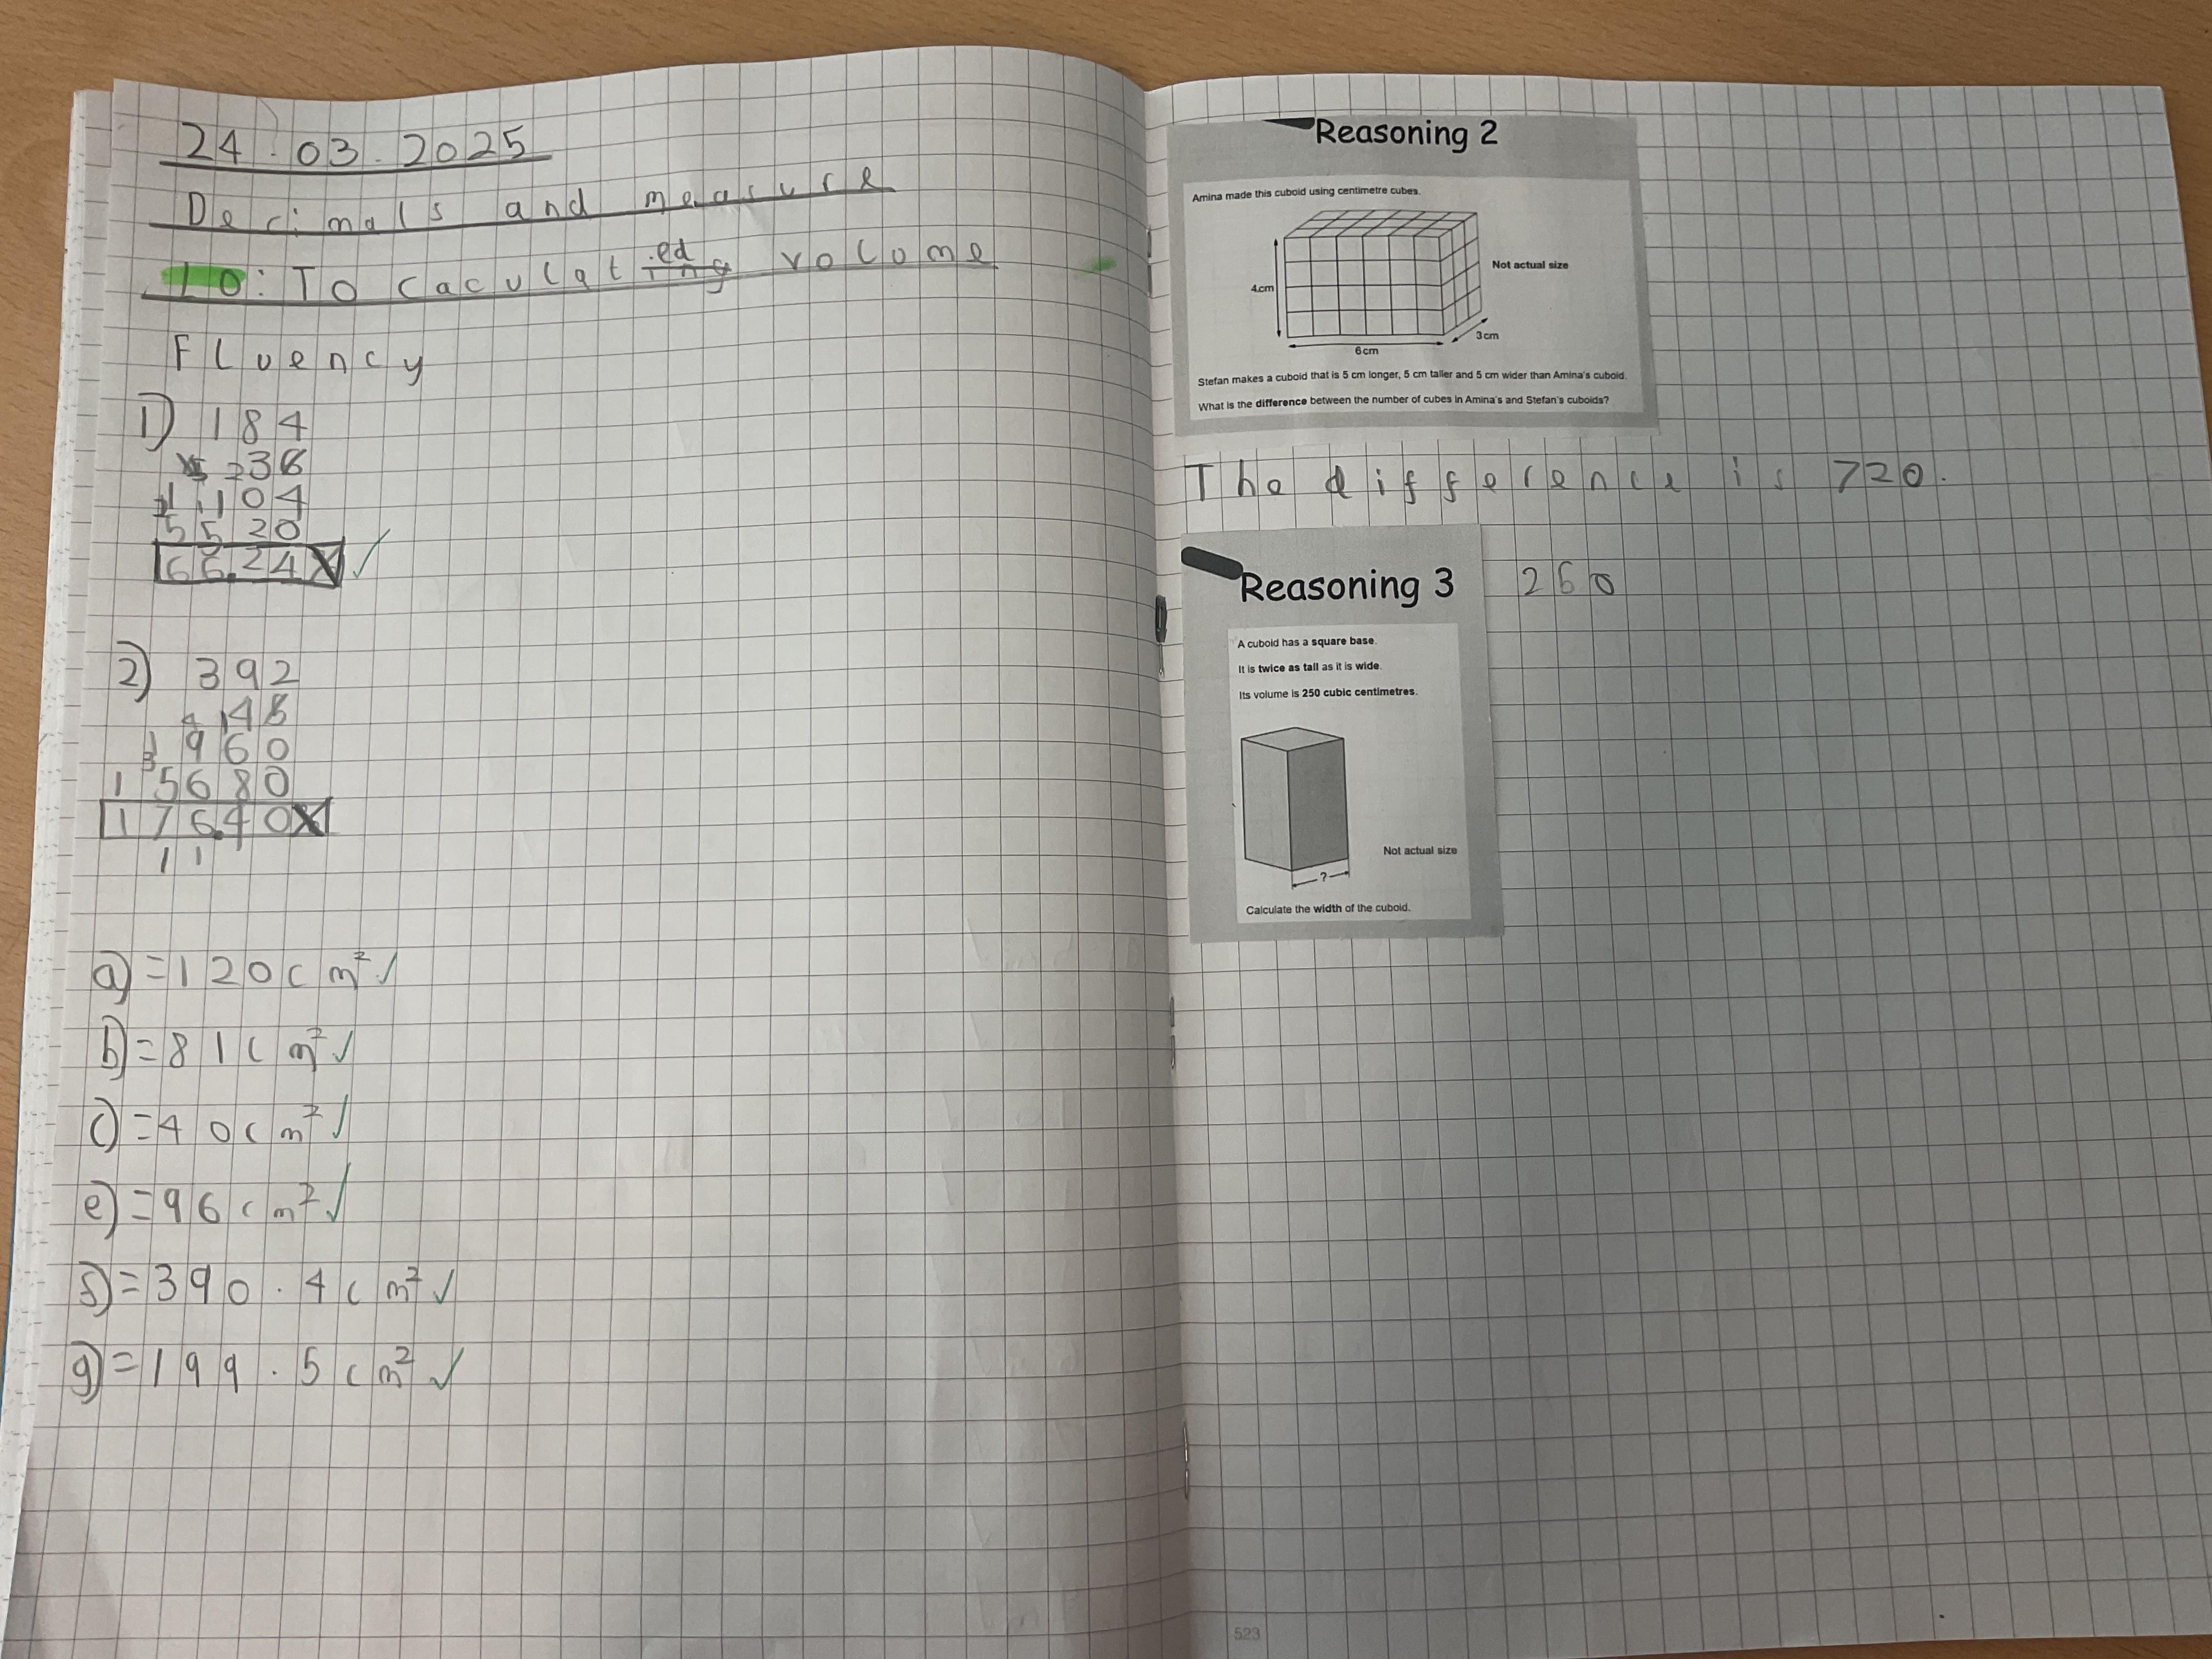 24.03.2025
Decimals and measure
LO: To caculated volome
Fluency
1) 184
36
1104
5520
66.24
2) 392
45
1960
15680
176.40
11
a) = 120cm² ✓
b) = 81cm² ✓
c) = 40cm² ✓
e) = 96cm² ✓
f) = 390.4cm² ✓
g) = 199.5cm² ✓
Reasoning 2
Amina made this cuboid using centimetre cubes.
Not actual size
4cm
3cm
6cm
Stefan makes a cuboid that is 5 cm longer, 5 cm taller and 5 cm wider than Amina's cuboid.
What is the difference between the number of cubes in Amina's and Stefan's cuboids?
The difference is 720.
Reasoning 3
260
A cuboid has a square base.
It is twice as tall as it is wide.
Its volume is 250 cubic centimetres.
Not actual size
?
Calculate the width of the cuboid.
523